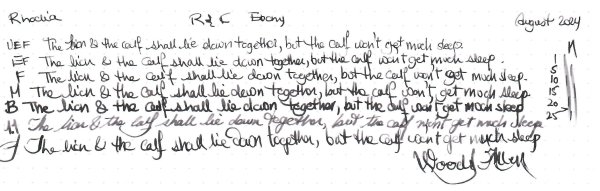 Rhodia R & K Ebony August 2024
UEF The lion & the calf shall lie down together, but the calf won't get much sleep.
EF The lion & the calf shall lie down together, but the calf won't get much sleep.
F The lion & the calf shall lie down together, but the calf won't get much sleep.
M The lion & the calf shall lie down together, but the calf won't get much sleep.
B The lion & the calf shall lie down together, but the calf won't get much sleep
The lion & the calf shall lie down together, but the calf might get much sleep
The lion & the calf shall lie down together, but the calf want get much sleep
Woody Allen
M
1
5
10
15
20
25